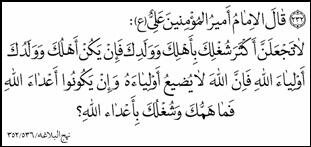 (۲۳۲) قَالَ الإِمَامُ أَمِيرُ المُؤْمِنِينَ عَلِيٌّ (ع):
لَا تَجْعَلَنَّ أَكْثَرَ شُغْلِكَ بِأَهْلِكَ وَوَلَدِكَ فَإِنْ يَكُنْ أَهْلُكَ وَوَلَدُكَ
أَوْلِيَاءَ اللهِ فَإِنَّ اللهَ لَا يُضِيعُ أَوْلِيَاءَهُ وَإِنْ يَكُونُوا أَعْدَاءَ اللهِ
فَمَا هَمُّكَ وَشُغْلُكَ بِأَعْدَاءِ اللهِ؟
نهج البلاغه/۵۳۶/۳۵۲